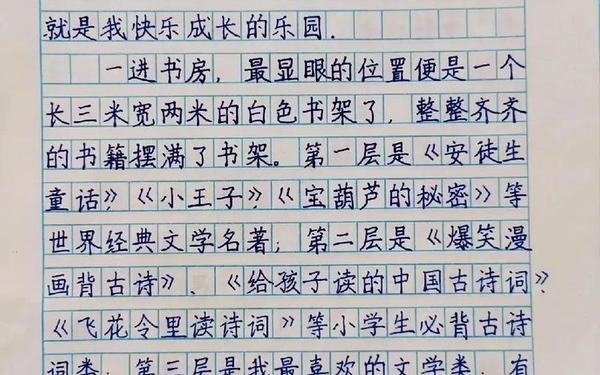 就是我快乐成长的乐园.
一进书房，最显眼的位置便是一个
长三米宽两米的白色书架了，整整齐齐
的书籍摆满了书架。第一层是《安徒生
童话》《小王子》《宝葫芦的秘密》等
世界经典文学名著；第二层是《爆笑漫
画背古诗》、《给孩子读的中国古诗词》、
《飞花令里读诗词》等小学生必背古诗
词类；第三层是我最喜欢的文学类，有